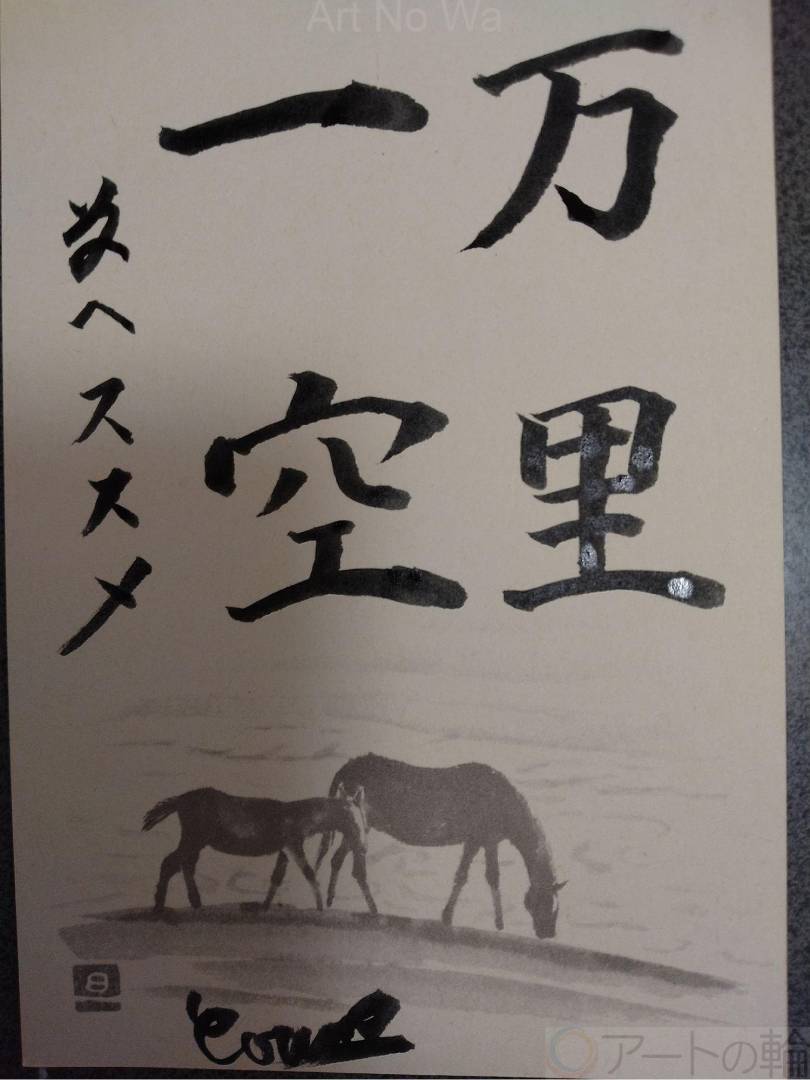 Art No Wa
万里
一空
前へススメ
アートの輪